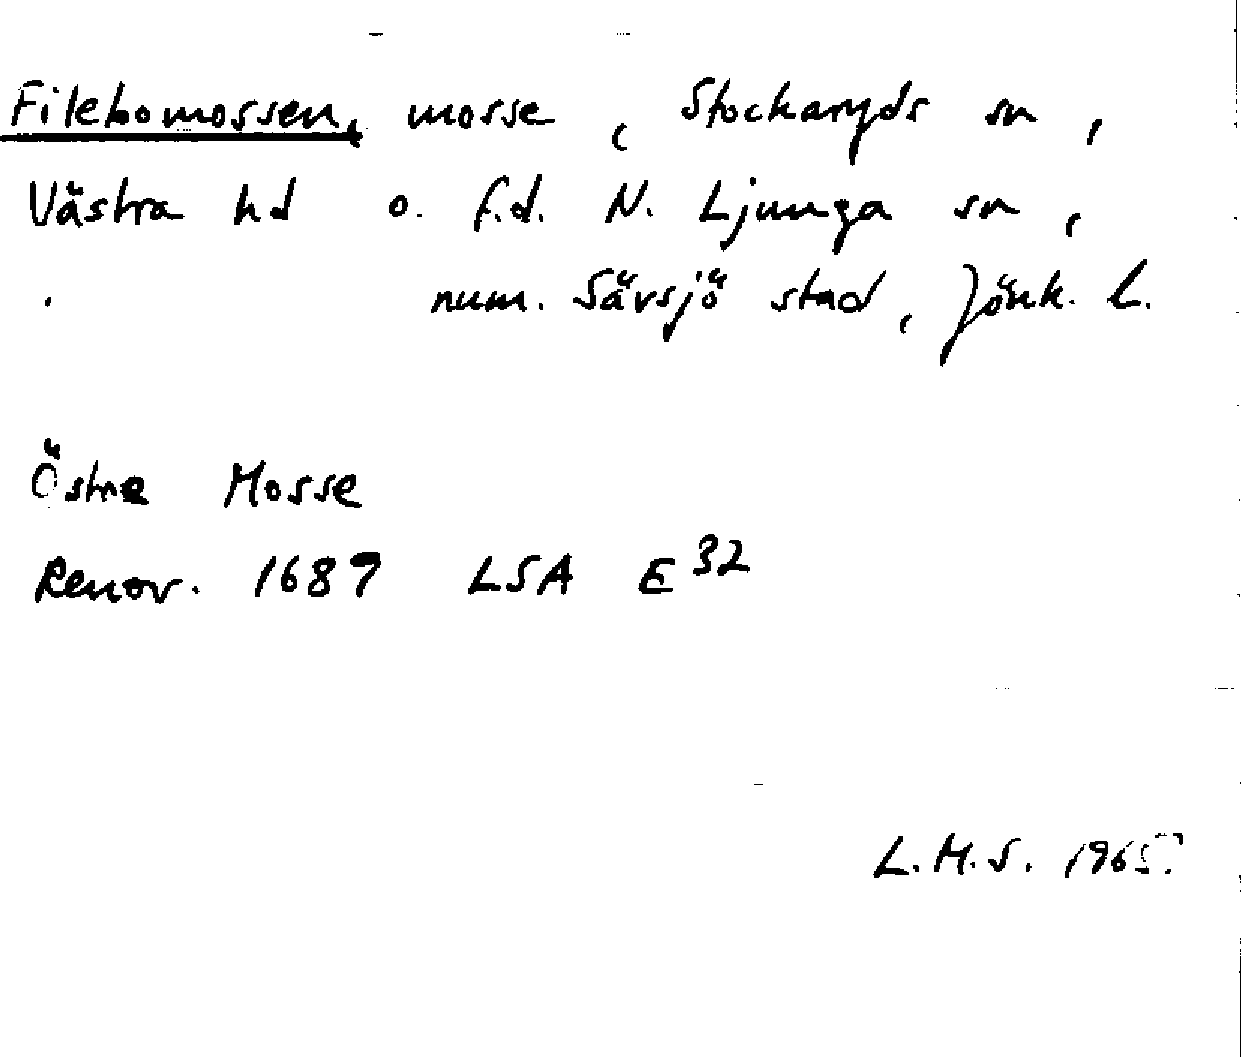 Filebomossen, mosse, Stockaryds sn,
Västra hd o. f.d. N. Ljunga sn,
num. Sävsjö stad, Jönk. L.
Östra Mosse
Renov. 1689 LSA E 32
L.M.S. 1965